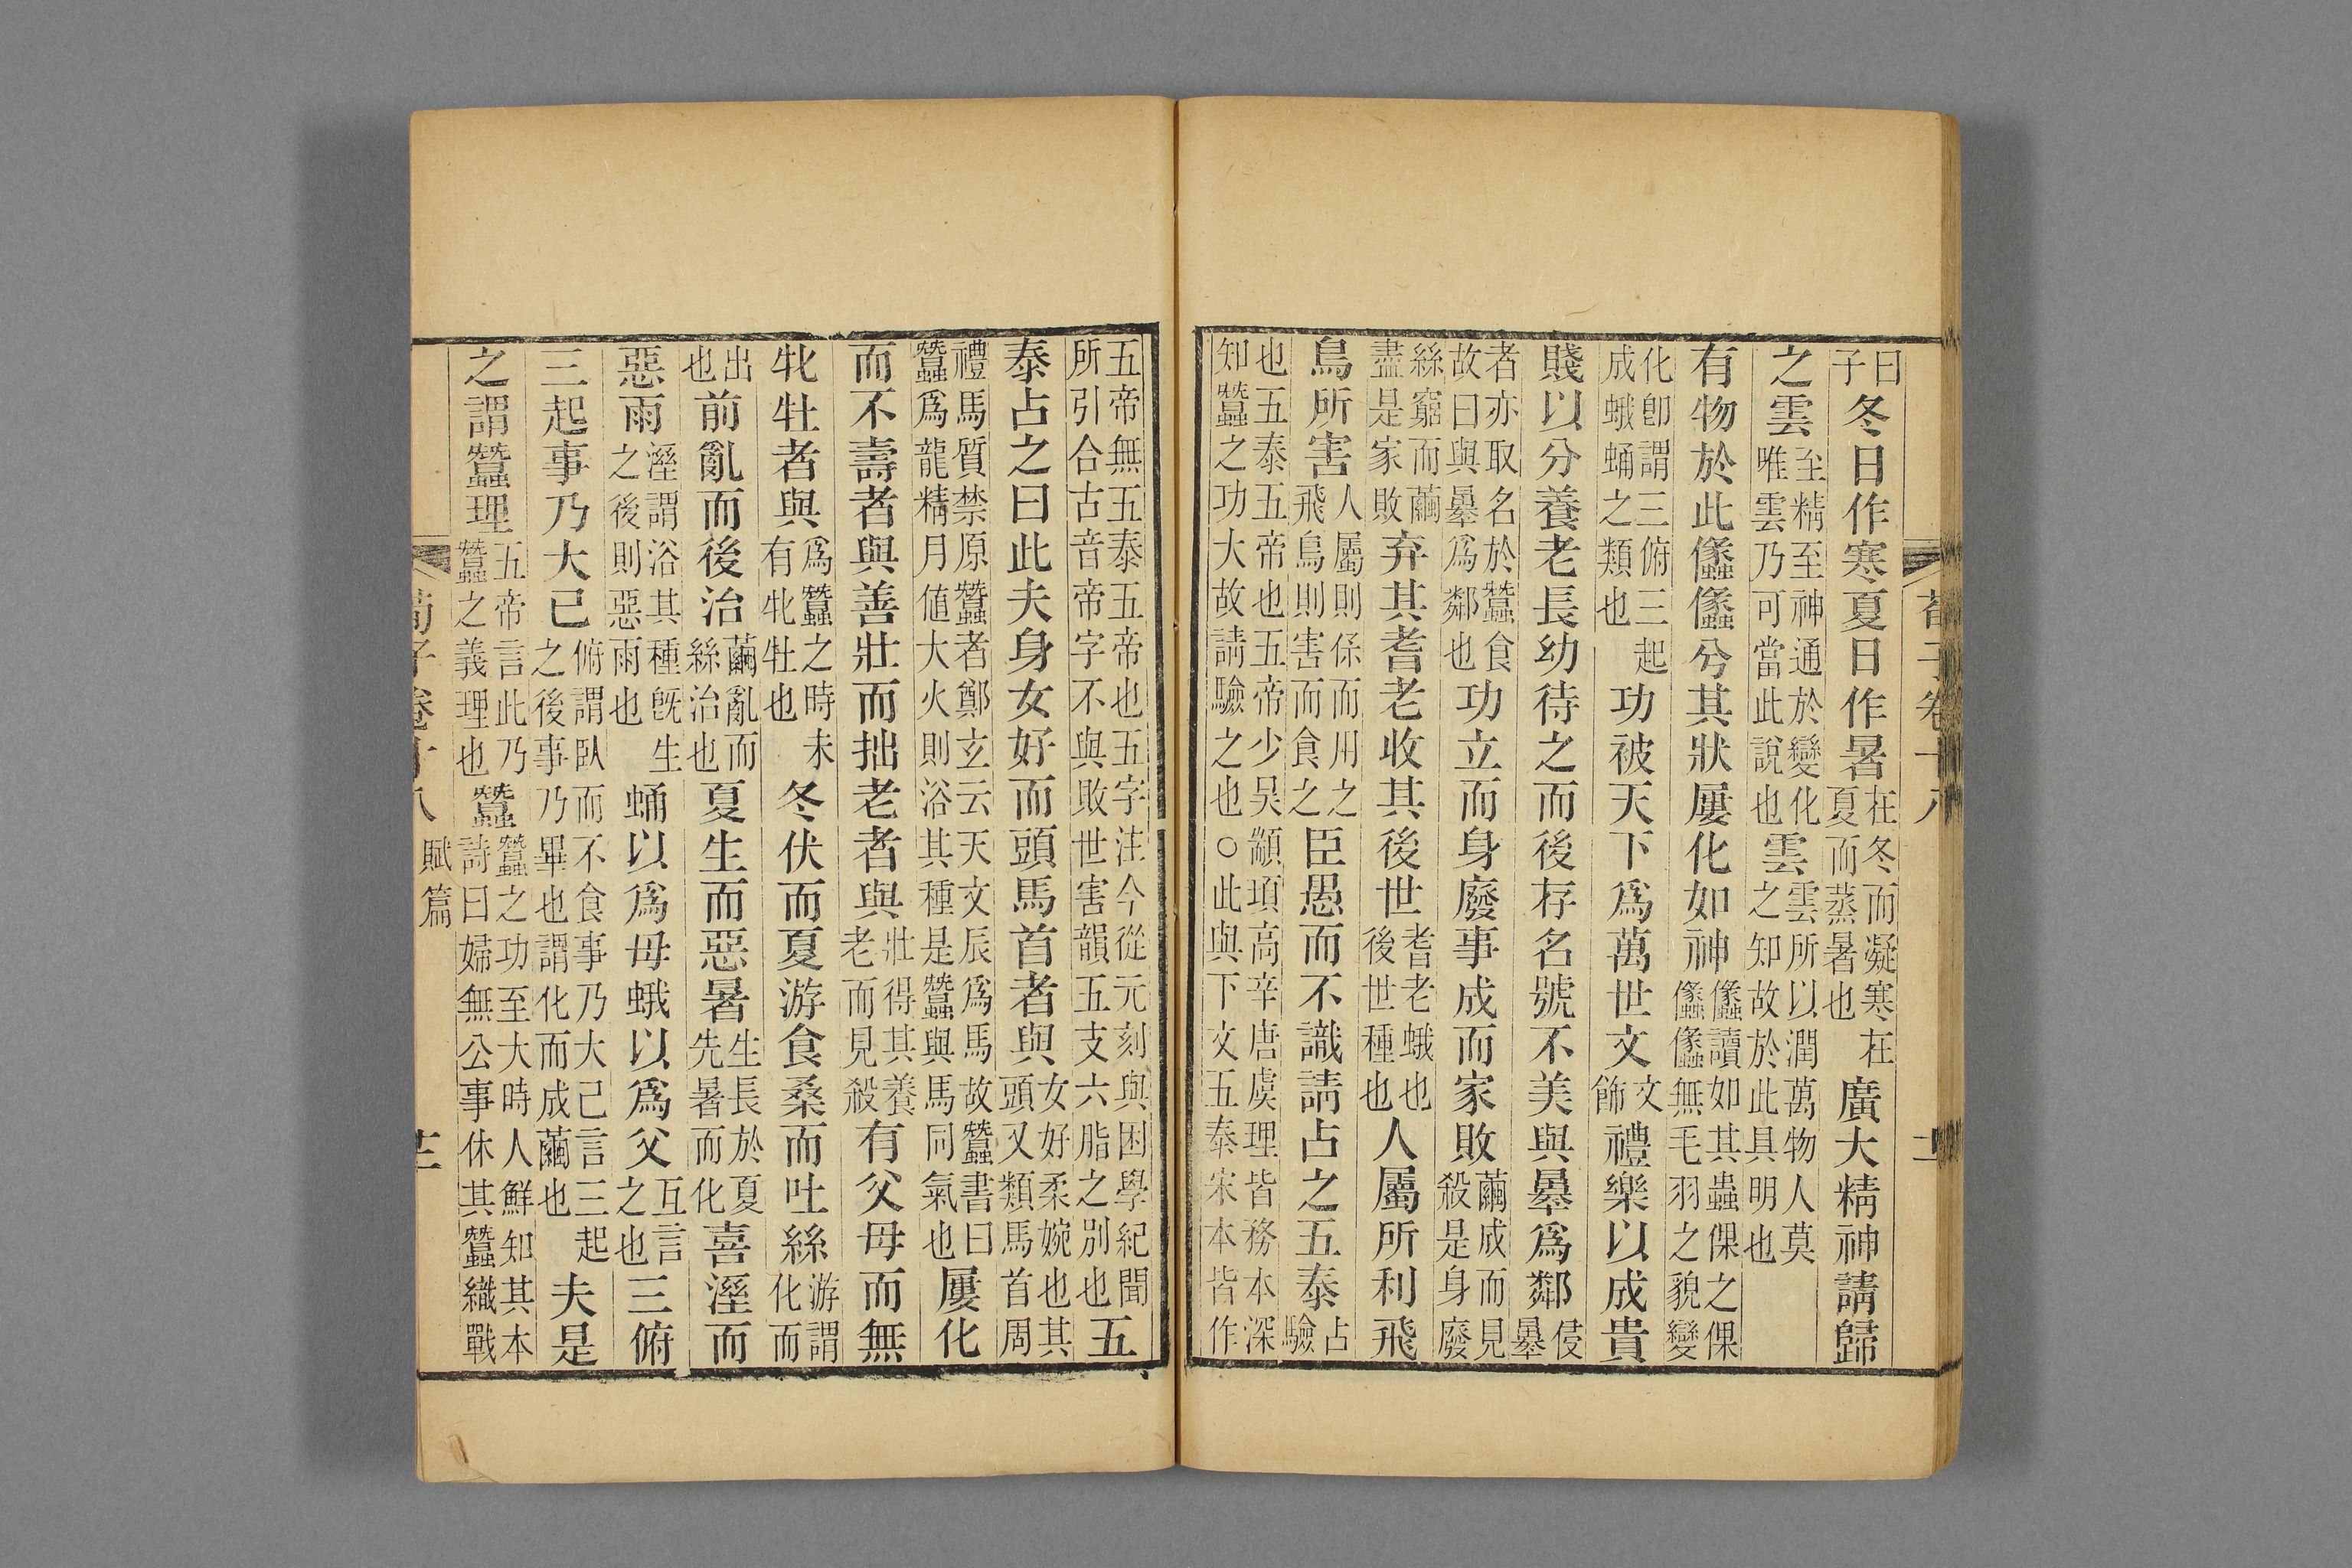 荀子卷十八
曰子冬日作寒夏日作暑在冬而凝寒在夏而蒸暑也廣大精神請歸
之雲至精至神通於變化唯雲乃可當此說也雲雲所以潤萬物人莫之知故於此具明也
有物於此㒩㒩兮其狀屢化如神㒩讀如其蟲倮之倮㒩㒩無毛羽之貌變
化卽謂三俯三起成蛾蛹之類也功被天下爲萬世文文飾禮樂以成貴
賤以分養老長幼待之而後存名號不美與㬥爲鄰侵㬥
者亦取名於蠶食故曰與㬥爲鄰也功立而身廢事成而家敗繭成而見殺是身廢
絲窮而繭盡是家敗弃其耆老收其後世耆老蛾也後世種也人屬所利飛
鳥所害人屬則保而用之飛鳥則害而食之臣愚而不識請占之五泰占驗
也五泰五帝也五帝少昊顓頊高辛唐虞理皆務本深知蠶之功大故請驗之也○此與下文五泰宋本皆作
五帝無五泰五帝也五字注今從元刻與困學紀聞所引合古音帝字不與敗世害韻五支六脂之別也五
泰占之曰此夫身女好而頭馬首者與女好柔婉也其頭又類馬首周
禮馬質禁原蠶者鄭玄云天文辰爲馬故蠶書曰蠶爲龍精月値大火則浴其種是蠶與馬同氣也屢化
而不壽者與善壯而拙老者與壯得其養老而見殺有父母而無
牝牡者與爲蠶之時未有牝牡也冬伏而夏游食桑而吐絲游謂化而
出也前亂而後治繭亂而絲治也夏生而惡暑生長於夏先暑而化喜溼而
惡雨溼謂浴其種旣生之後則惡雨也蛹以爲母蛾以爲父互言之也三俯
三起事乃大已俯謂臥而不食事乃大已言三起之後事乃畢也謂化而成繭也夫是
之謂蠶理五帝言此乃蠶之義理也蠶蠶之功至大時人鮮知其本詩曰婦無公事休其蠶織戰
荀子卷十八 賦篇